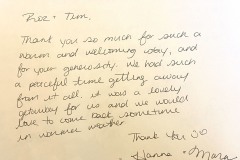 Roz + Tim,
Thank you so much for such a
warm and welcoming stay, and
for your generosity. We had such
a peaceful time getting away
from it all, it was a lovely
getaway for us and we would
love to come back sometime
in warmer weather
Thank You
Hanna + Mara